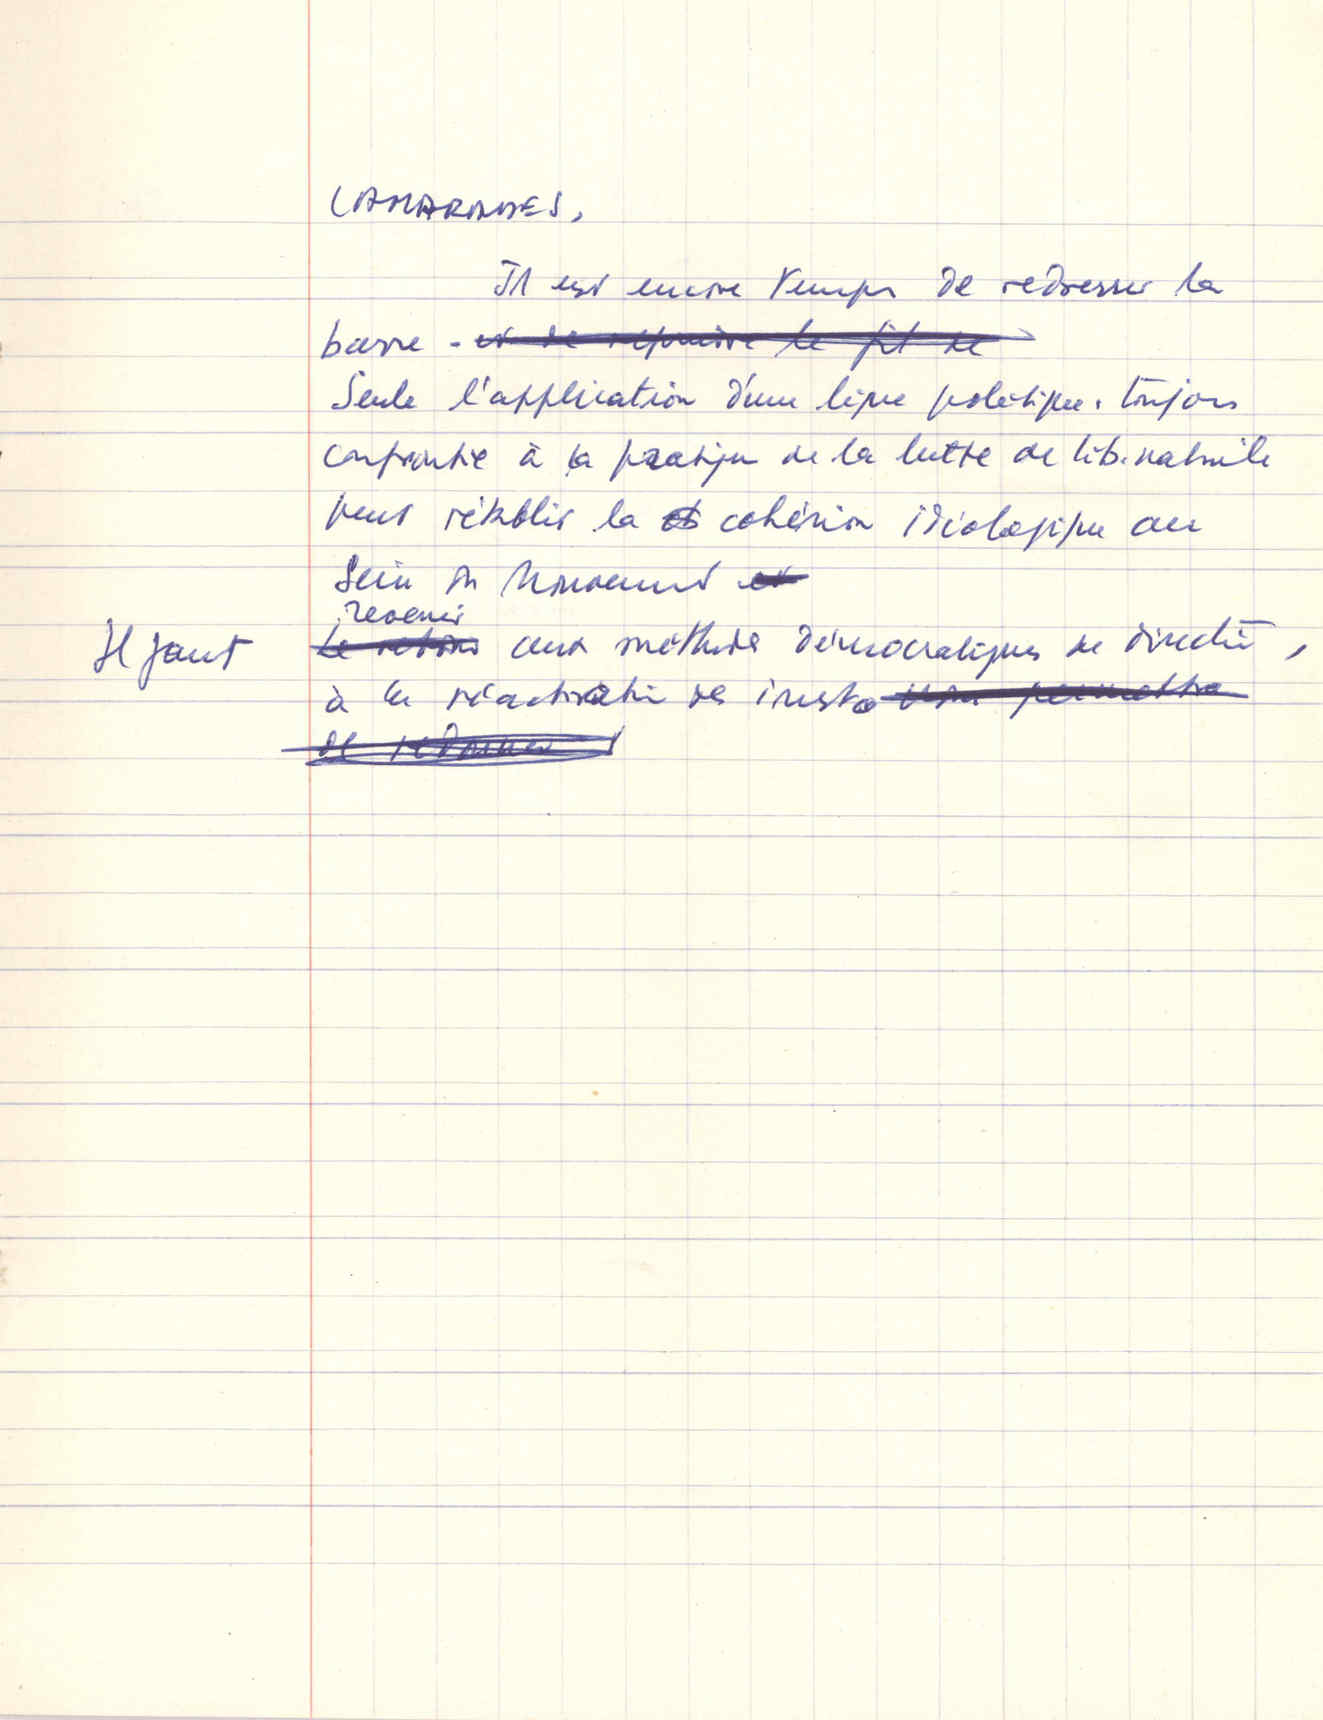 CAMARADES,
Il est encore temps de redresser la
barre - et de reprendre le fil de
Seule l'application d'une ligne politique toujours
confrontée à la pratique de la lutte de lib. nationale
peut rétablir la cohésion idéologique au
sein du Mouvement et
revenir
Il faut le retour aux méthodes démocratiques de direction,
à la réactivation des insto permettre
de redonner